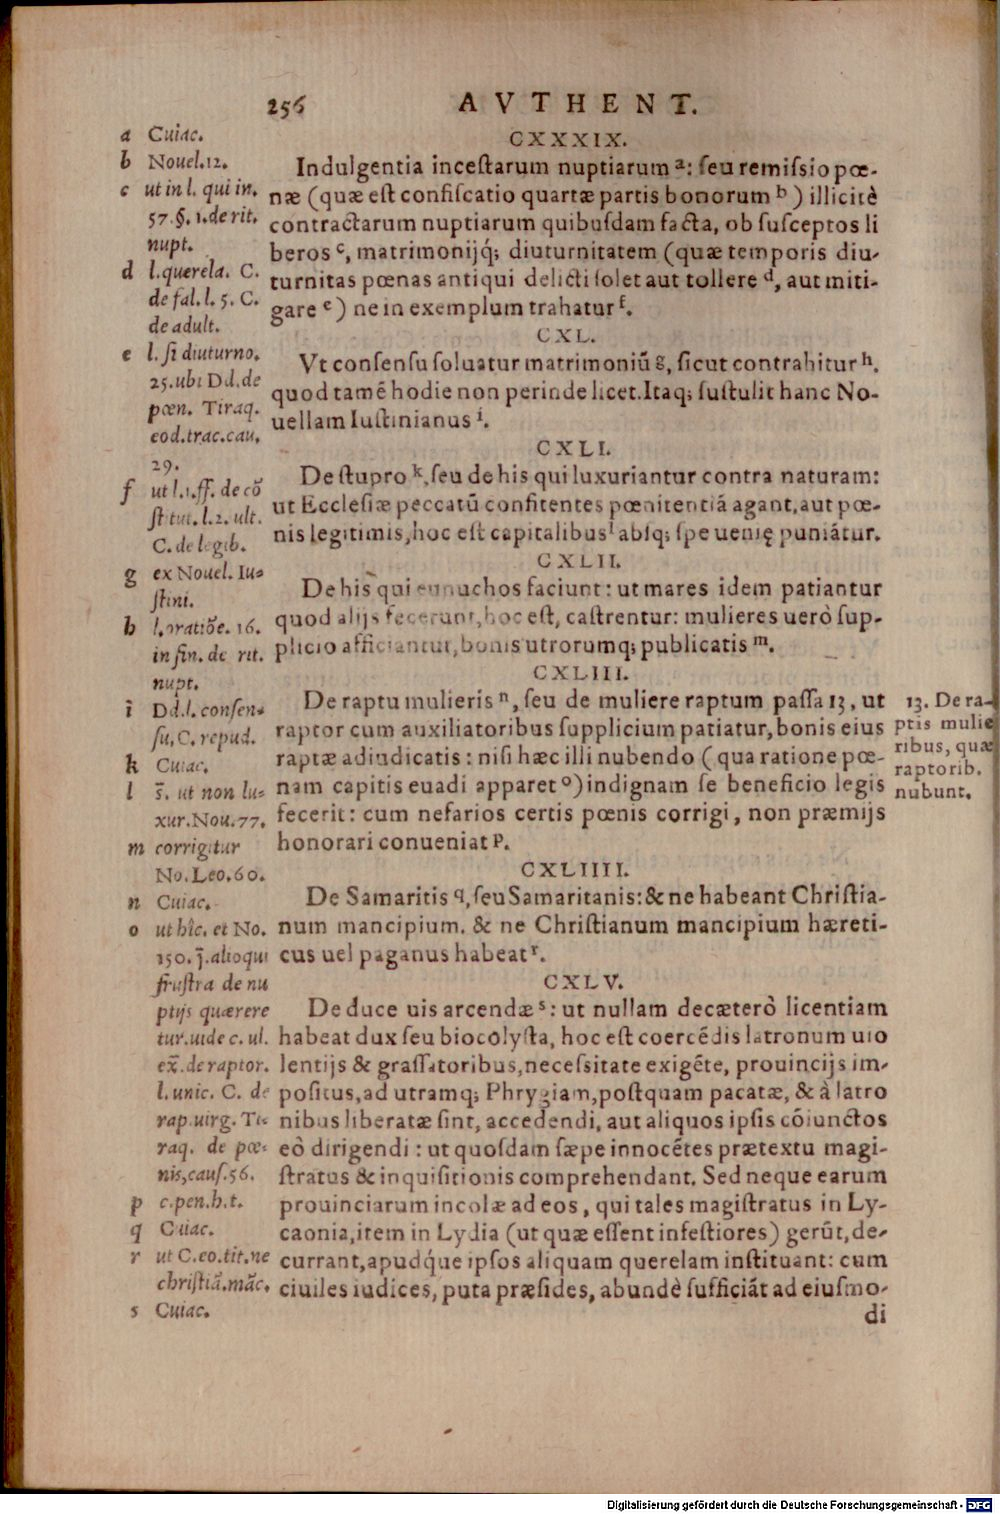 256 AVTHENT.
CXXXIX.
Indulgentia incestarum nuptiarum a: seu remissio pœ-
næ (quæ est confiscatio quartæ partis bonorum b) illicitè
contractarum nuptiarum quibusdam facta, ob susceptos li
beros c, matrimonijq́; diuturnitatem (quæ temporis diu-
turnitas pœnas antiqui delicti solet aut tollere d, aut miti-
gare e) ne in exemplum trahatur f.
CXL.
Vt consensu soluatur matrimoniũ g, sicut contrahitur h.
quod tamẽ hodie non perinde licet. Itaq; sustulit hanc No-
uellam Iustinianus i.
CXLI.
De stupro k, seu de his qui luxuriantur contra naturam:
ut Ecclesiæ peccatũ confitentes pœnitentiã agant, aut pœ-
nis legitimis, hoc est capitalibus l absq; spe uenię puniãtur.
CXLII.
De his qui eunuchos faciunt: ut mares idem patiantur
quod alijs fecerunt, hoc est, castrentur: mulieres uerò sup-
plicio afficiantur, bonis utrorumq; publicatis m.
CXLIII.
De raptu mulieris n, seu de muliere raptum passa 13, ut
raptor cum auxiliatoribus supplicium patiatur, bonis eius
raptæ adiudicatis: nisi hæc illi nubendo (qua ratione pœ-
nam capitis euadi apparet o) indignam se beneficio legis
fecerit: cum nefarios certis pœnis corrigi, non præmijs
honorari conueniat p.
CXLIIII.
De Samaritis q, seu Samaritanis: & ne habeant Christia-
num mancipium. & ne Christianum mancipium hæreti-
cus uel paganus habeat r.
CXLV.
De duce uis arcendæ s: ut nullam decæterò licentiam
habeat dux seu biocolysta, hoc est coercẽdis latronum uio
lentijs & grassatoribus, necessitate exigẽte, prouincijs im-
positus, ad utramq; Phrygiam, postquam pacatæ, & à latro
nibus liberatæ sint, accedendi, aut aliquos ipsis cõiunctos
eò dirigendi: ut quosdam sæpe innocẽtes prætextu magi-
stratus & inquisitionis comprehendant. Sed neque earum
prouinciarum incolæ ad eos, qui tales magistratus in Ly-
caonia, item in Lydia (ut quæ essent infestiores) gerũt, de-
currant, apudq́ue ipsos aliquam querelam instituant: cum
ciuiles iudices, puta præsides, abundè sufficiãt ad eiusmo-
di
a Cuiac.
b Nouel. 12.
c ut in l. qui in.
57. §. 1. de rit.
nupt.
d l. querela. C.
de fal. l. 5. C.
de adult.
e l. si diuturno.
25. ubi Dd. de
pœn. Tiraq.
eod. trac. cau.
29.
f ut l. 1. ff. de cõ
stitut. l. 2. ult.
C. de legib.
g ex Nouel. Iu-
stini.
h l. oratiõe. 16.
in fin. de rit.
nupt.
i Dd. l. consen-
su, C. repud.
k Cuiac.
l §. ut non lu-
xur. Nou. 77.
m corrigitur
No. Leo. 60.
n Cuiac.
o ut hîc. et No.
150. §. alioqui
frustra de nu
ptijs quærere
tur. uide c. ul.
ex̃. de raptor.
l. unic. C. de
rap. uirg. Ti-
raq. de pœ-
nis, caus. 56.
p c. pen. h. t.
q Cuiac.
r ut C. eo. tit. ne
christiã. mãc.
s Cuiac.
13. De ra-
ptis mulie
ribus, quæ
raptorib.
nubunt.
Digitalisierung gefördert durch die Deutsche Forschungsgemeinschaft - DFG